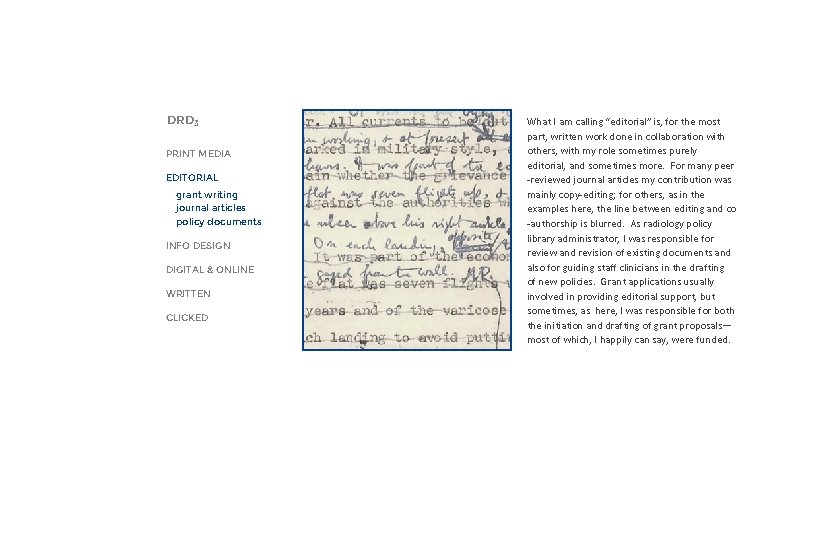 DRD3
PRINT MEDIA
EDITORIAL
grant writing
journal articles
policy documents
INFO DESIGN
DIGITAL & ONLINE
WRITTEN
CLICKED
r. All currents to be
arked in military style,
ain whether the grievance
flat was seven flights up, &
against the authorities w
a ulcer above his right ankle
opposite
On each landing,
It was part of the econo
gazed from the wall.
e flat was seven flights
years and of the varicose
ch landing to avoid putti
What I am calling “editorial” is, for the most
part, written work done in collaboration with
others, with my role sometimes purely
editorial, and sometimes more. For many peer
-reviewed journal articles my contribution was
mainly copy-editing; for others, as in the
examples here, the line between editing and co
-authorship is blurred. As radiology policy
library administrator, I was responsible for
review and revision of existing documents and
also for guiding staff clinicians in the drafting
of new policies. Grant applications usually
involved in providing editorial support, but
sometimes, as here, I was responsible for both
the initiation and drafting of grant proposals—
most of which, I happily can say, were funded.